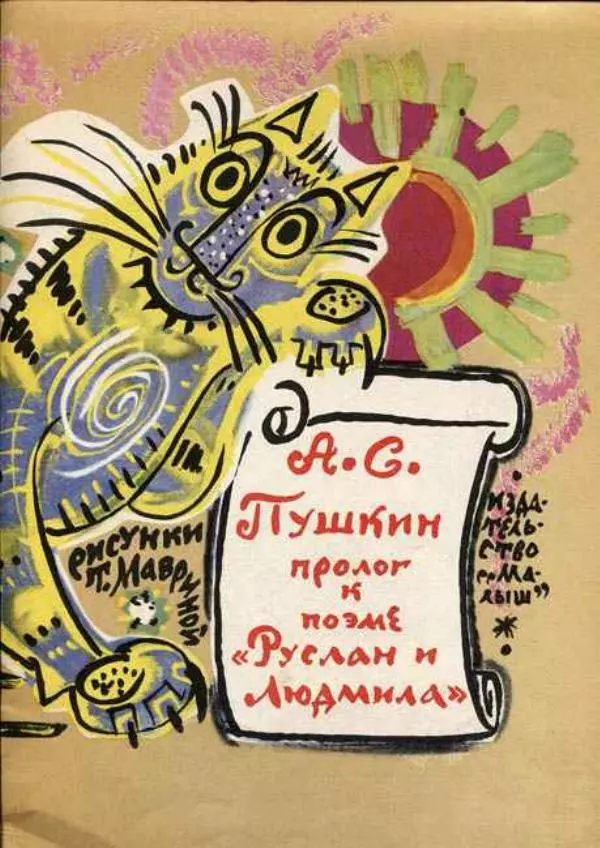 А.С.
Пушкин
пролог
к
поэме
«Руслан и
Людмила»
рисунки
Т. Мавриной
изда-
тель-
ство
„Ма-
лыш”